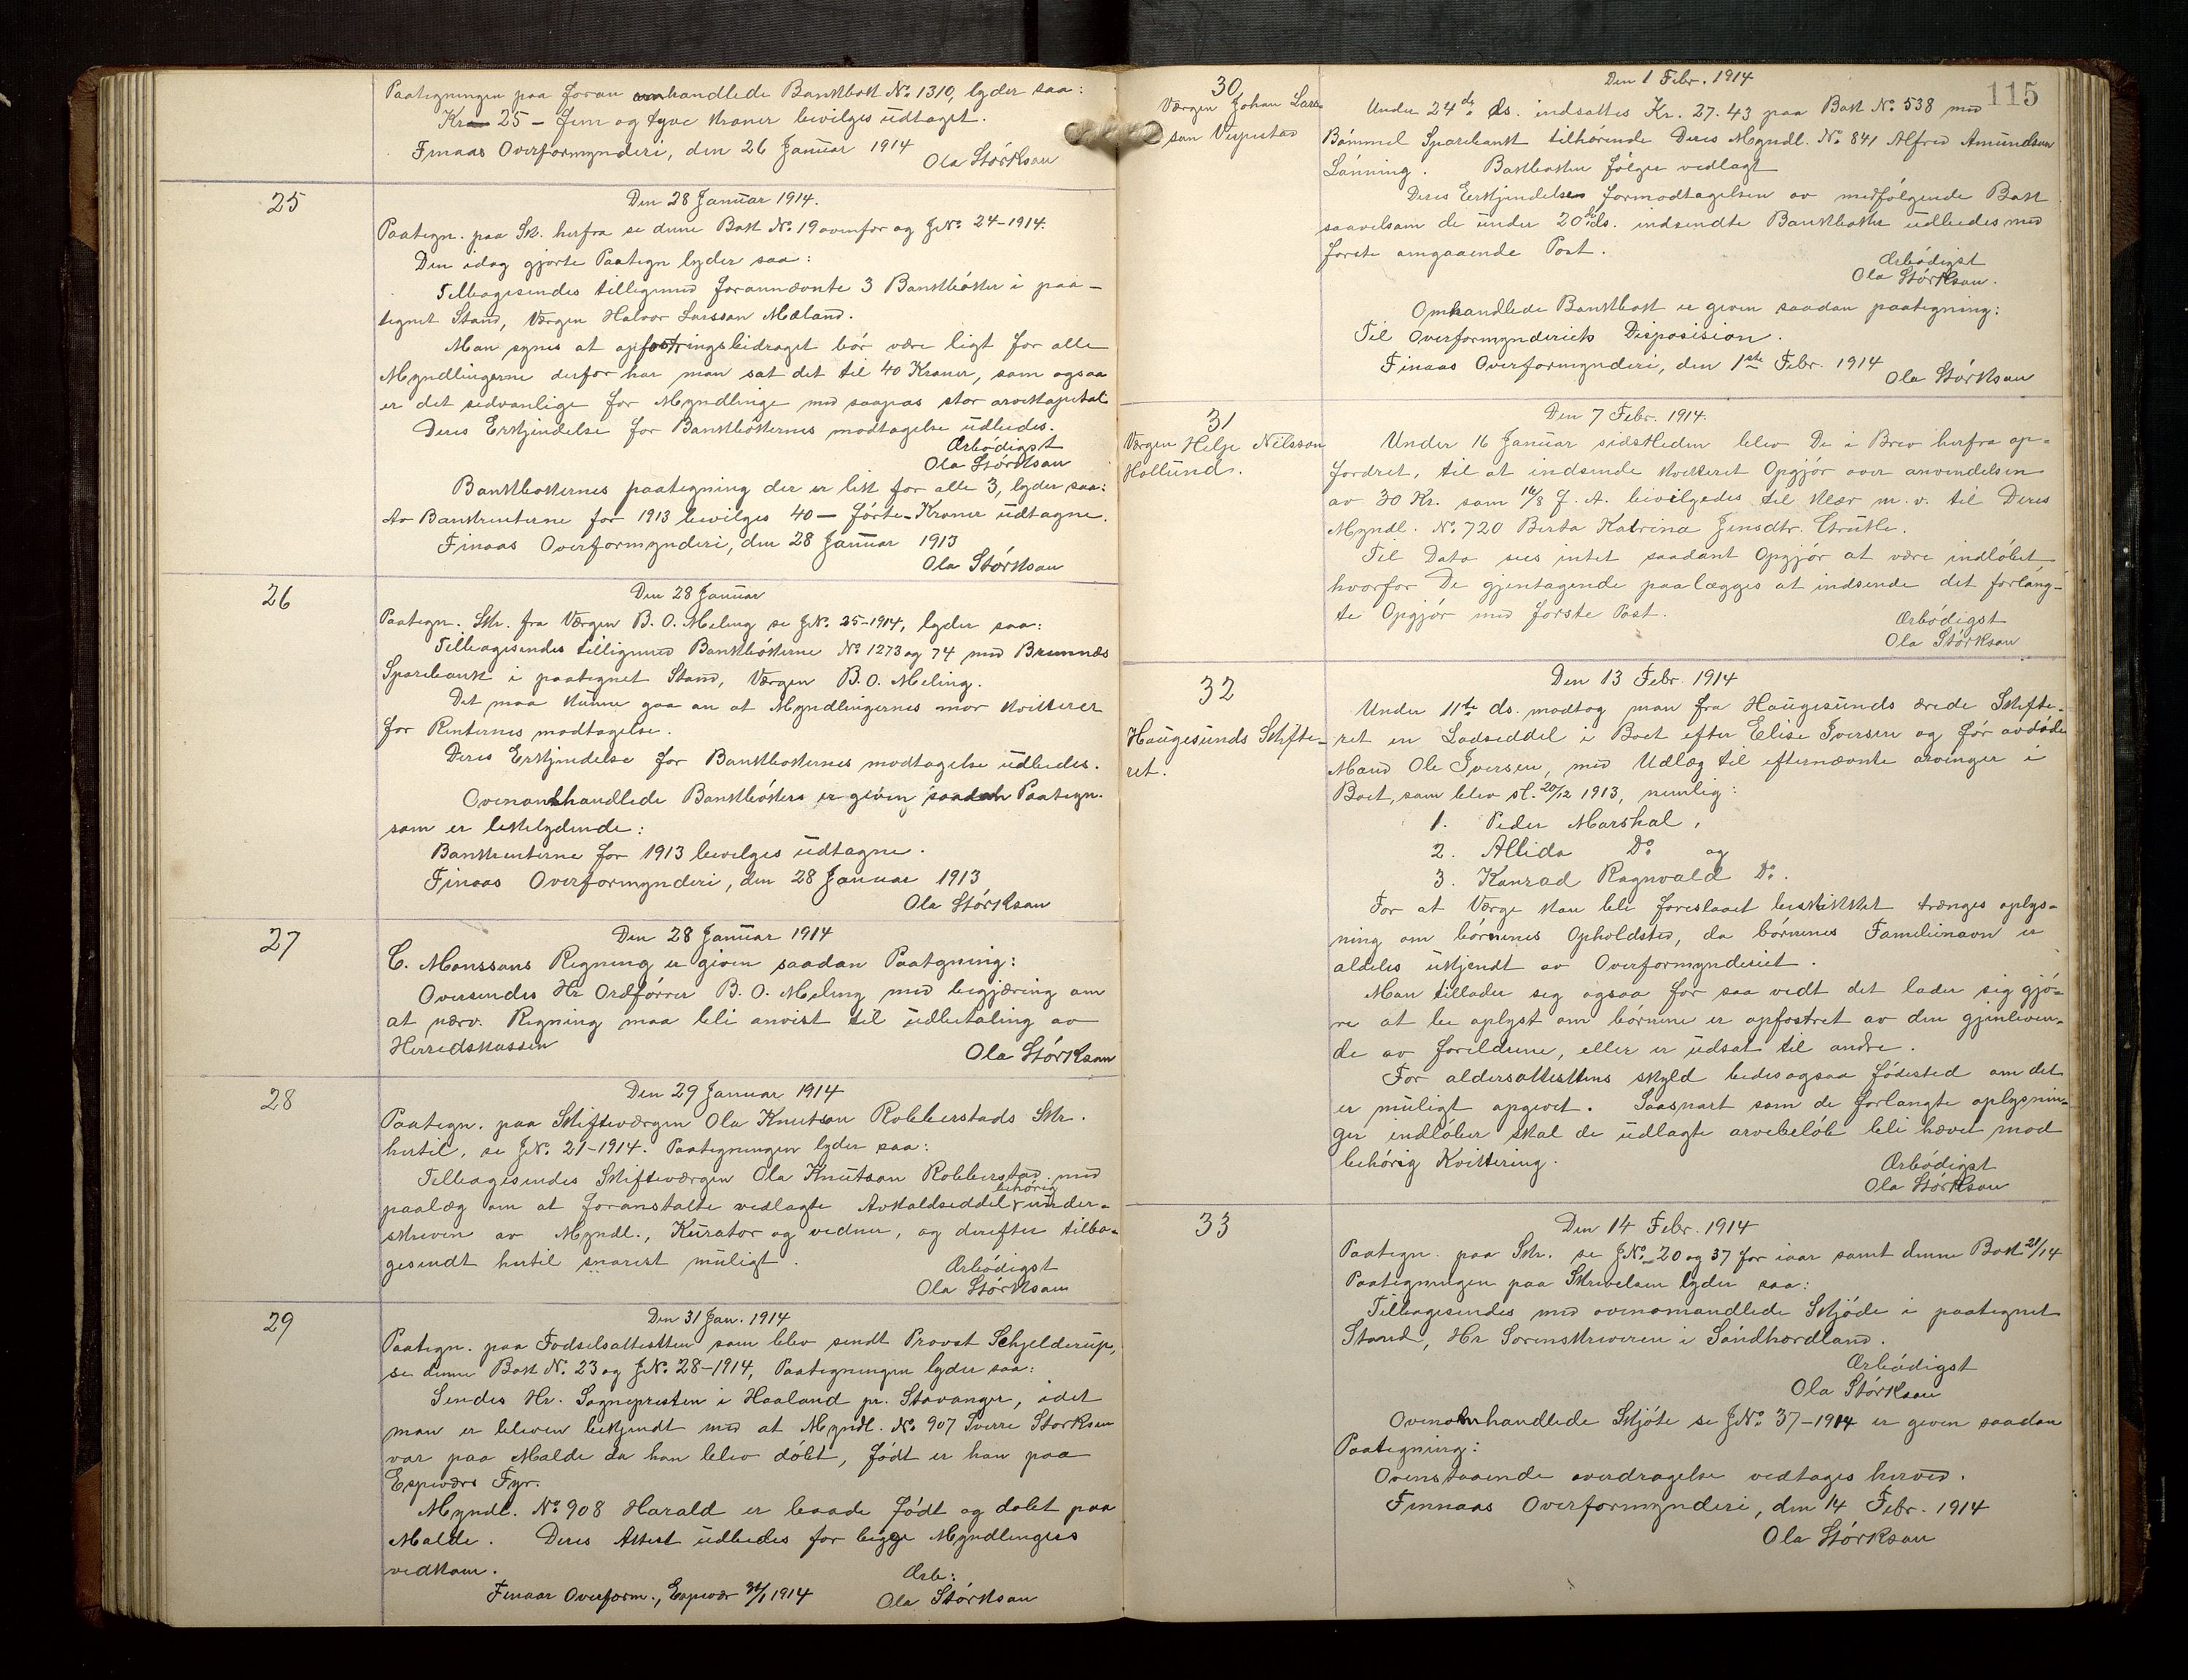 Paategningen paa foran omhandlede Bankbok No. 1310, lyder saa:
Kr 25 – Fem og tyve Kroner bevilges udtaget.
Finaas Overformynderi, den 26 Januar 1914
Ola Størksøn
25
Den 28 Januar 1914.
Paategn. paa Sk. herfra se denne Bok No. 19 ovenfor og JNo. 24-1914.
Den idag gjorte Paategn lyder saa:
Tilbagesendes tilligemed forannævnte 3 Bankbøker i paa-
tegnet Stand, Værgen Halvor Larsson Mæland.
Man synes at opfostringsbidraget bør være ligt for alle
Myndlingerne derfor har man sat det til 40 Kroner, som ogsaa
er det sedvanlige for Myndlinge med saapas stor arvekapital
Deres Erkjendelse for Bankbøkernes modtagelse udbedes.
Ærbødigst
Ola Størksøn
Bankbøkernes paategning der er lik for alle 3, lyder saa:
Av Bankrenterne for 1913 bevilges 40 – førte – Kroner udtagne.
Finaas Overformynderi, den 28 Januar 1913
Ola Størksøn
26
Den 28 Januar
Paategn. Skr. fra Værgen B. O. Meling se JNo. 25-1914, lyder saa:
Tilbagesendes tilligemed Bankbøkerne No 1273 og 74 med Bremnæs
Sparebank i paategnet Stand, Værgen B. O. Meling.
Det maa kunne gaa an at Myndlingernes mor kvitterer
for Renternes modtagelse.
Deres Erkjendelse for Bankbøkernes modtagelse udbedes.
Ovenomhandlede Bankbøkers er given saadan Paategn.
som er likelydende:
Bankrenterne for 1913 bevilges udtagne.
Finaas Overformynderi, den 28 Januar 1913
Ola Størksøn
27
Den 28 Januar 1914
C. Monssons Regning er given saadan Paategning:
Oversendes Hr Ordførrer B. O. Meling med begjæring om
at nærv. Regning maa bli anvist til udbetaling av
Herredskassen
Ola Størksøn
28
Den 29 Januar 1914
Paategn. paa Skifteværgen Ola Knutson Robberstads Skr.
hertil, se JNo. 21-1914. Paategningen lyder saa:
Tilbagesendes Skifteværgen Ola Knutson Robberstad med
paalæg om at foranstalte vedlagte Avkaldseddel behörig under-
skreven av Myndl., Kurator og vedner, og derefter tilba-
gesendt hertil snarest muligt.
Ærbødigst
Ola Størksøn
29
Den 31 Jan. 1914
Paategn. paa Fødselsattesten som blev sendt Provst Schjelderup,
se denne Bok No. 23 og JNo. 28-1914, Paategningen lyder saa:
Sendes Hr. Sognepresten i Haaland pr. Stavanger, idet
man er bleven bekjendt med at Myndl. No. 907 Sverre Størksen
var paa Malde da han blev døbt, født er han paa
Espevær Fyr.
Myndl. No 908 Harald er baade født og døbt paa
Malde. Deres Attest udbedes for begge Myndlingers
vedkom.
Ærb:
Finaas Overform., Espevær 31/1 1914
Ola Størksøn
115
30
Værgen Johan Lars
son Vespestad
Den 1 Febr. 1914
Under 24de ds. indsattes Kr. 27.43 paa Bok No. 538 med
Bømmel Sparebank tilhørende Deres Myndl. No. 841 Alfred Amundson
Lønning. Bankboken følger vedlagt
Deres Erkjendelse formodtagelsen av medfølgende Bok
saavelsom de under 20de ds. indsendte Bankbøker udbedes med
første omgaaende Post.
Ærbødigst
Ola Størksøn.
Omhandlede Bankbok er given saadan paategning:
Til Overformynderiets Disposision.
Finaas Overformynderi, den 1ste Febr. 1914
Ola Størksøn
31
Værgen Helje Nilsson
Hollund.
Den 7 Febr. 1914.
Under 16 Januar sidstleden blev De i Brev herfra op-
fordret, til at indsende kvitteret Opgjør over anvendelsen
av 30 Kr. som 16/8 f. A. bevilgedes til klær m. v. til Deres
Myndl. No. 720 Berta Katrina Jensdtr. Grutle.
Til Dato sees intet saadant Opgjør at være indløbet
hvorfor De gjentagende paalægges at indsende det forlang-
te Opgjør med første Post.
Ærbødigst
Ola Størksøn
32
Haugesunds Skifte-
ret.
Den 13 Febr. 1914
Under 11te ds. modtog man fra Haugesunds ærede Skifte-
ret en Lodseddel i Boet efter Elise Iversen og før avdøde
Mand Ole Iversen, med Udlæg til efternævnte arvinger i
Boet, som blev sl. 20/12 1913, nemlig:
1. Peder Marskal,
2. Allida Do. og
3. Konrad Ragnvald Do.
For at Værge kan bli foreslaaet beskikket trænges oplys-
ning om børnenes Opholdsted, da børnenes Familienavn er
aldeles ukjendt av Overformynderiet.
Man tillader sig ogsaa for saa vedt det lader sig gjø-
re at be oplyst om børnene er opfostret av den gjenleven-
de av foreldrene, eller er udsat til andre.
For aldersattestens skyld bedes ogsaa fødested om det
er muligt opgivet. Saasnart som de forlangte oplysnin-
ger indløber skal de udlagte arvebeløb bli hævet mod
behørig Kvittering.
Ærbødigst
Ola Størksøn
33
Den 14 Febr. 1914
Paategn. paa Skr. se JNo. 20 og 37 for iaar samt denne Bok 21/14
Paategningen paa Skrivelsen lyder saa:
Tilbagesendes med ovenomandlede Skjøde i paategnet
Stand, Hr Sorenskriveren i Søndhordland.
Ærbødigst
Ola Størksøn
Ovenomhandlede Skjøte se JNo. 37-1914 er given saadan
Paategning:
Ovenstaaende overdragelse vedtages herved.
Finnaas Overformynderi, den 14 Febr. 1914
Ola Størksøn